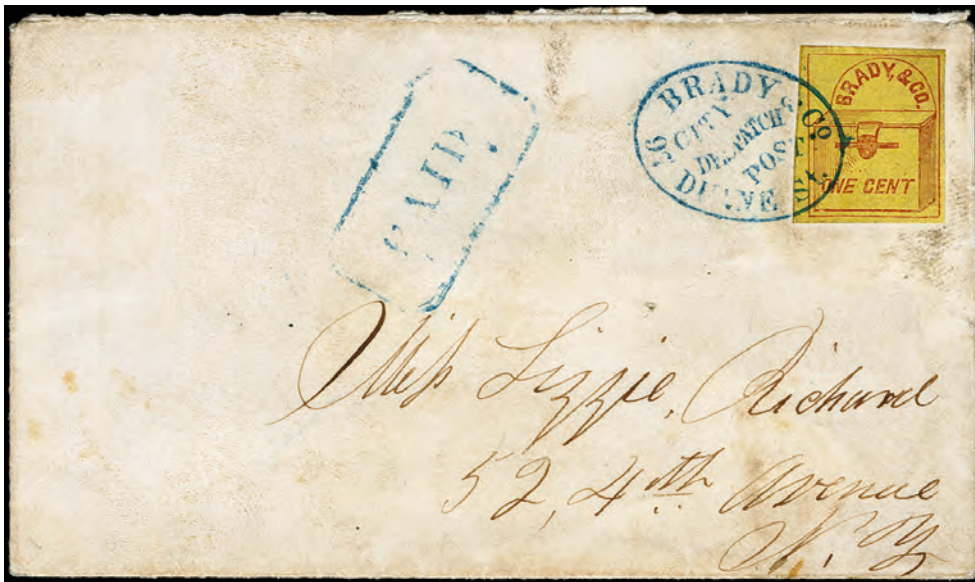 PAID
BRADY & Co
CITY
DESPATCH
POST
56 DUANE St.
BRADY, & CO.
ONE CENT
Miss Lizzie, Richard
52, 4th Avenue
N. Y